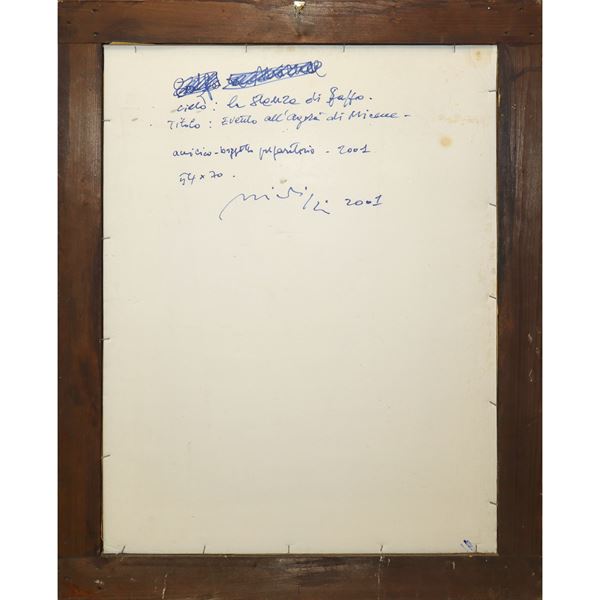 ciclo: la Stanza di Saffo.
Titolo: Evento all'agorà di Mirene -
- bozzetto preparatorio - 2001
54 x 70.
2001